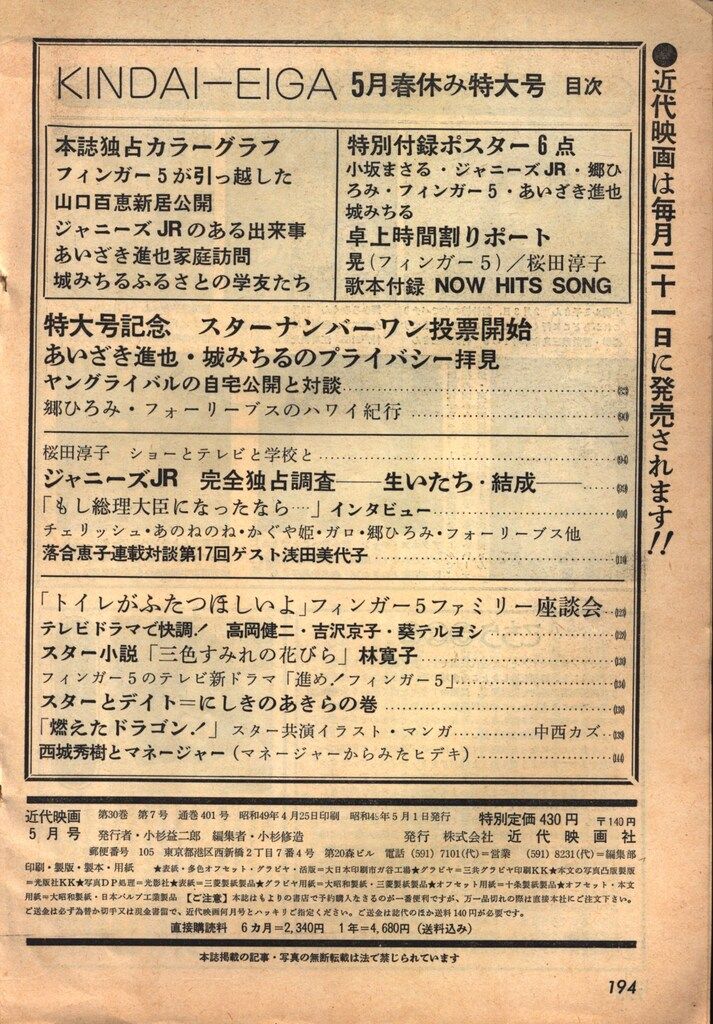 ●近代映画は毎月二十一日に発売されます!!
KINDAI—EIGA 5月春休み特大号 目次
本誌独占カラーグラフ
フィンガー5が引っ越した
山口百恵新居公開
ジャニーズJRのある出来事
あいざき進也家庭訪問
城みちるふるさとの学友たち
特別付録ポスター6点
小坂まさる・ジャニーズJR・郷ひ
ろみ・フィンガー5・あいざき進也
城みちる
卓上時間割りポート
晃(フィンガー5)/桜田淳子
歌本付録 NOW HITS SONG
特大号記念 スターナンバーワン投票開始
あいざき進也・城みちるのプライバシー拝見
ヤングライバルの自宅公開と対談
郷ひろみ・フォーリーブスのハワイ紀行
桜田淳子 ショーとテレビと学校と
ジャニーズJR 完全独占調査——生いたち・結成——
「もし総理大臣になったなら…」インタビュー
チェリッシュ・あのねのね・かぐや姫・ガロ・郷ひろみ・フォーリーブス他
落合恵子連載対談第17回ゲスト浅田美代子
「トイレがふたつほしいよ」フィンガー5ファミリー座談会
テレビドラマで快調! 高岡健二・吉沢京子・葵テルヨシ
スター小説「三色すみれの花びら」林寛子
フィンガー5のテレビ新ドラマ「進め!フィンガー5」
スターとデイト=にしきのあきらの巻
「燃えたドラゴン!」スター共演イラスト・マンガ 中西カズ
西城秀樹とマネージャー(マネージャーからみたヒデキ)
近代映画
5月号
第30巻 第7号 通巻401号 昭和49年4月25日印刷 昭和49年5月1日発行 特別定価430円 〒140円
発行者・小杉益二郎 編集者・小杉修造 発行 株式会社 近代映画社
郵便番号 105 東京都港区西新橋2丁目7番4号 第20森ビル 電話(591)7101(代)=営業 (591)8231(代)=編集部
印刷・製版・製本・用紙 ★表紙・多色オフセット・グラビヤ・活版=大日本印刷市ガ谷工場★グラビヤ=三共グラビヤ印刷KK★本文の写真凸版製版
=光版社KK★写真DP処理=光影社★表紙=三菱製紙製品★グラビヤ用紙=大昭和製紙・三菱製紙製品★オフセット用紙=十条製紙製品★オフセット・本文
用紙=大昭和製紙・日本パルプ工業製品 【ご注意】本誌はもよりの書店で予約購入なさるのが一番便利ですが、万一品切れの際は直接本社にご注文下さい。
ご送金は必ず為替か切手又は現金書留で、近代映画何月号とハッキリご指定ください。ご送金は誌代のほか送料140円が必要です。
直接購読料 6カ月=2,340円 1年=4,680円(送料込み)
本誌掲載の記事・写真の無断転載は法で禁じられています
194